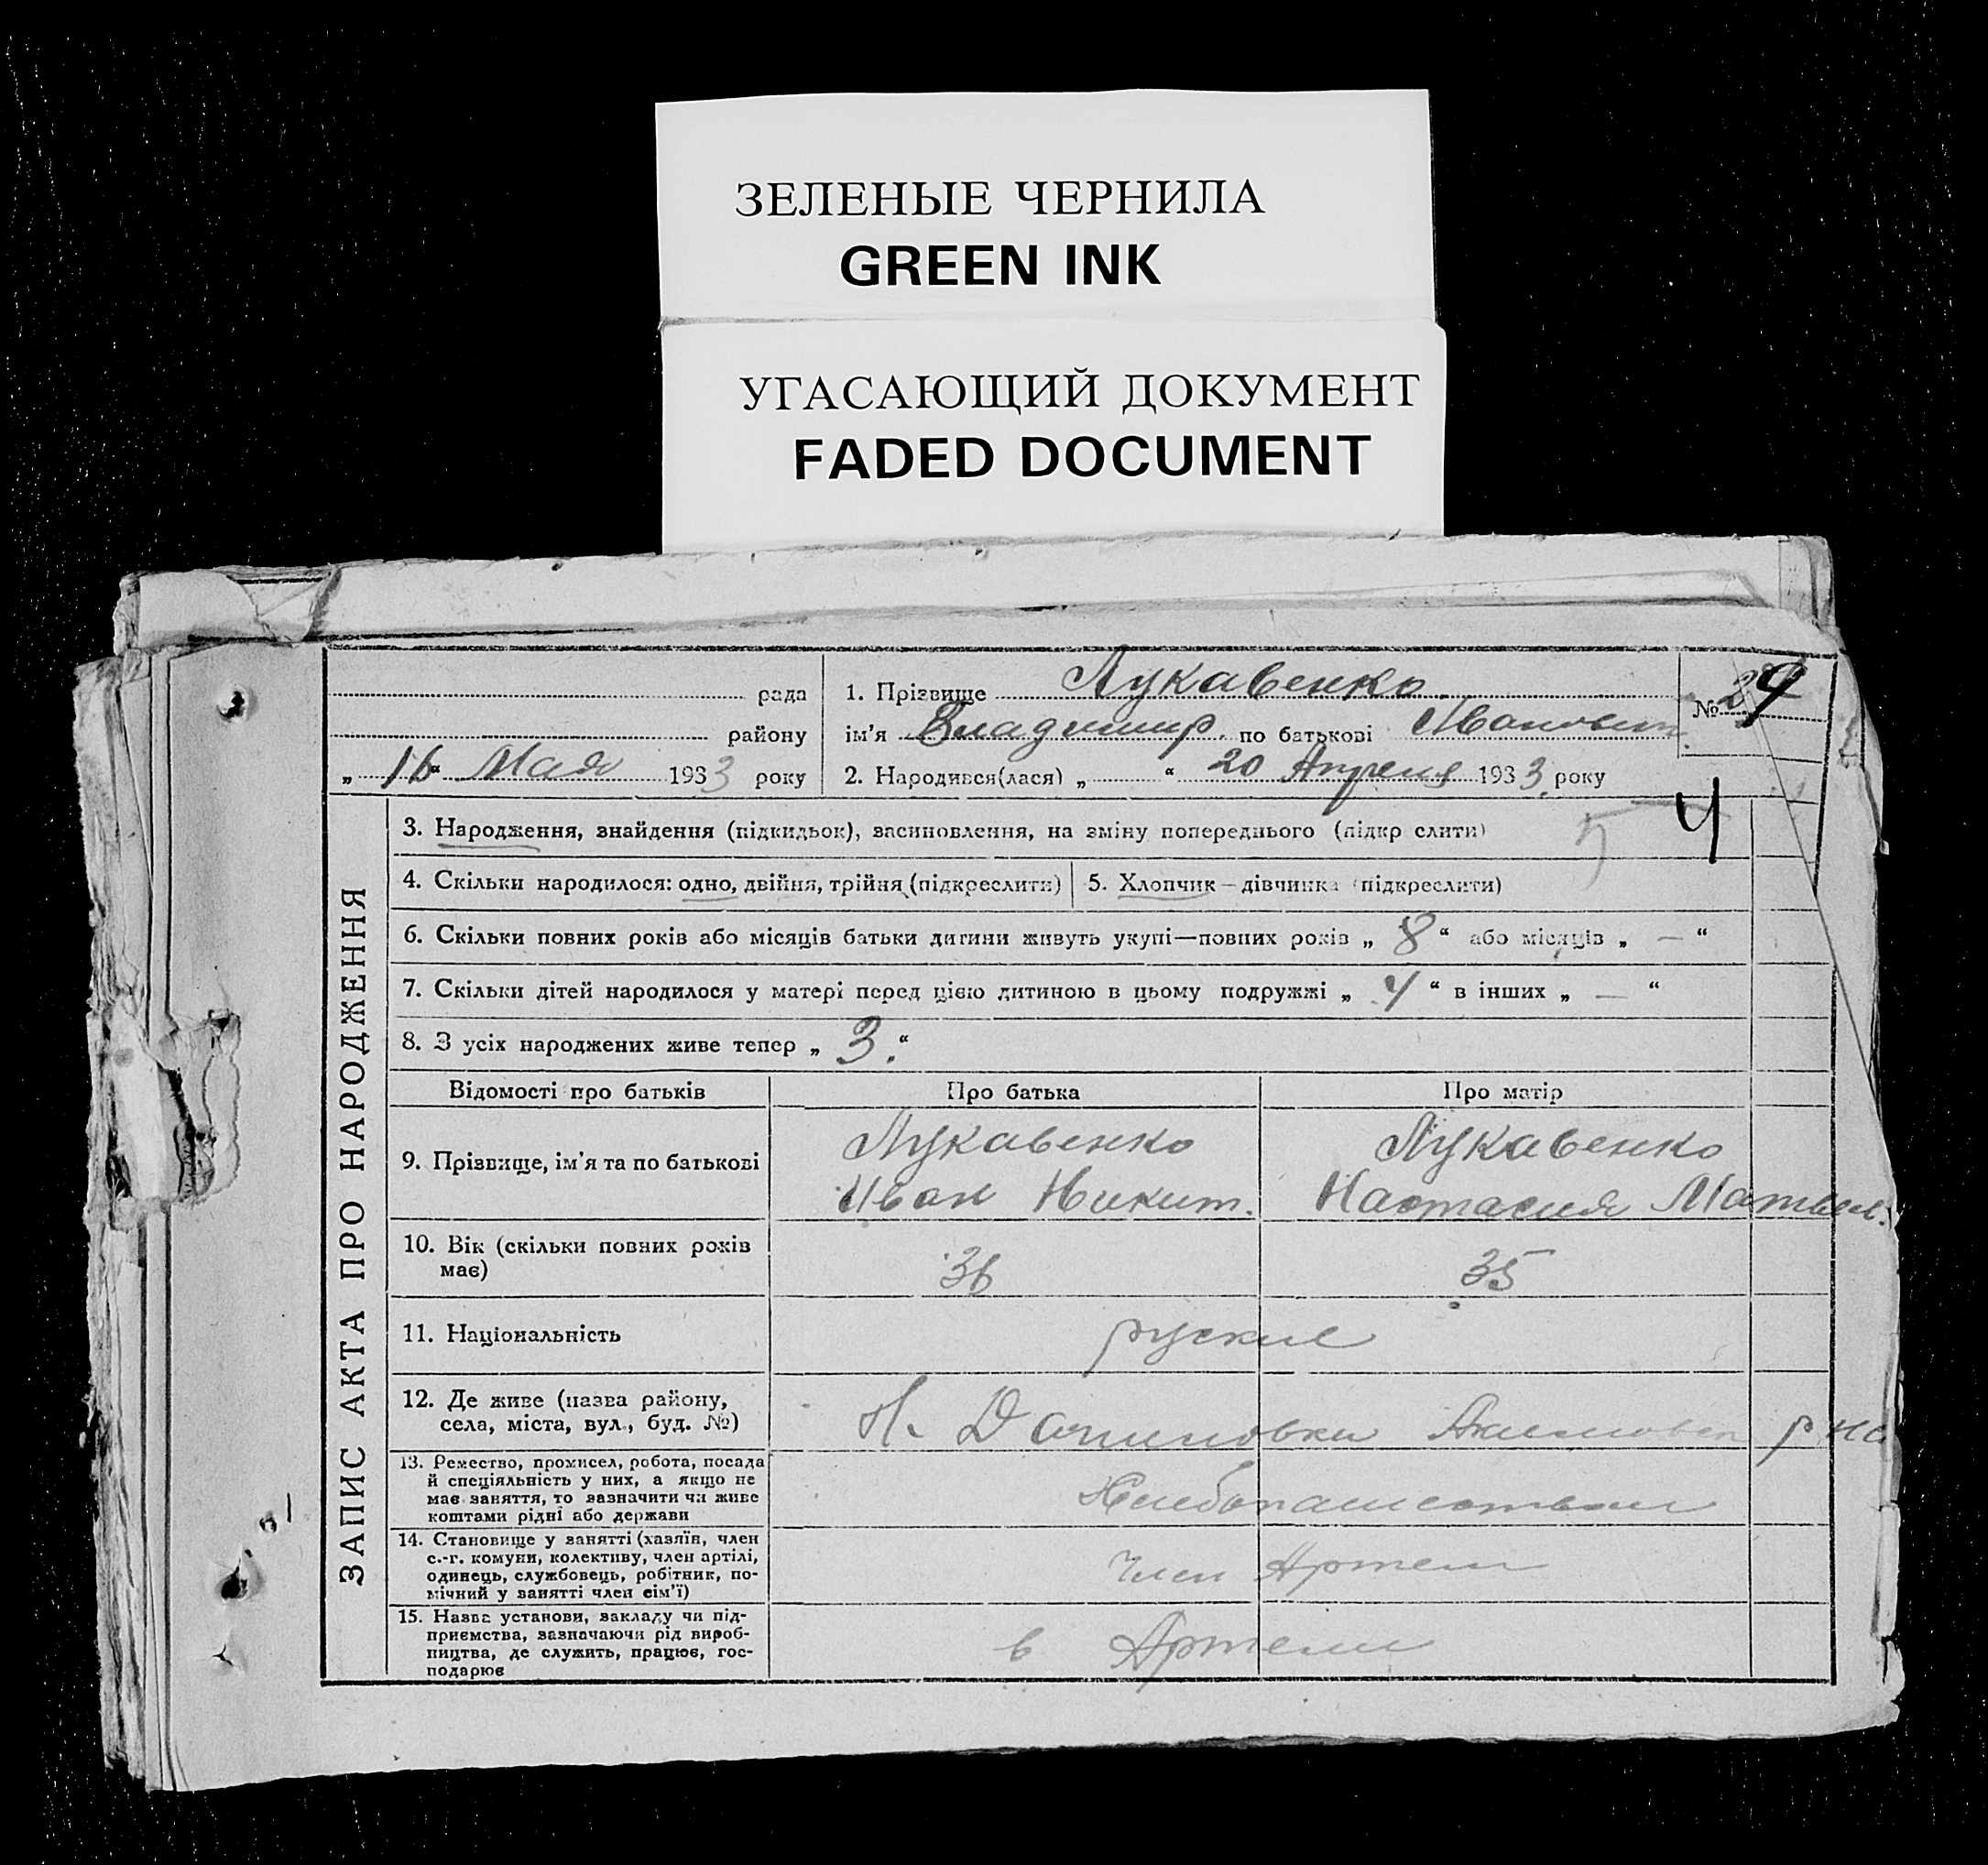 ЗЕЛЕНЫЕ ЧЕРНИЛА
GREEN INK
УГАСАЮЩИЙ ДОКУМЕНТ
FADED DOCUMENT
рада
району
„ 16 “ Мая 1933 року
1. Прізвище Лукавенко
ім'я Владимир по батькові Иванович
2. Народився(лася) „ “ 20 Апреля 1933 року
№ 29
ЗАПИС АКТА ПРО НАРОДЖЕННЯ
3. Народження, знайдення (підкидьок), засиновлення, на зміну попереднього (підкр слити) 5 4
4. Скільки народилося: одно, двійня, трійня (підкреслити) 5. Хлопчик — дівчинка (підкреслити)
6. Скільки повних років або місяців батьки дитини живуть укупі—повних років „ 8 “ або місяців „ — “
7. Скільки дітей народилося у матері перед цією дитиною в цьому подружжі „ 4 “ в інших „ — “
8. З усіх народжених живе тепер „ 3. “
Відомості про батьків Про батька Про матір
9. Прізвище, ім'я та по батькові
Лукавенко
Иван Никит.
Лукавенко
Настасия Матвеев.
10. Вік (скільки повних років
має)
36 35
11. Національність
руские
12. Де живе (назва району,
села, міста, вул., буд. №)
Н. Даниловка р на
13. Ремество, промисел, робота, посада
й спеціяльність у них, а якщо не
має заняття, то зазначити чи живе
коштами рідні або держави
Хлебопашеством
14. Становище у занятті (хазяїн, член
с.-г. комуни, колективу, член артілі,
одинець, службовець, робітник, по-
мічний у занятті член сім'ї)
член Артели
15. Назва установи, закладу чи під-
приємства, зазначаючи рід вироб-
ництва, де служить, працює, гос-
подарює
в Артели